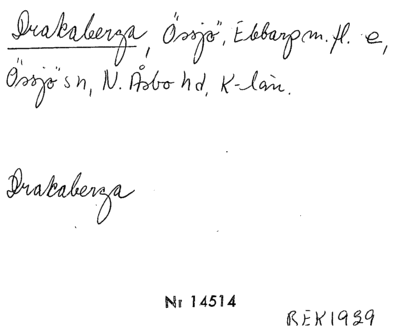 Drakaberga, Össjö", Ebbarp m. fl. e,
Össjö" sn, N. Åsbo hd, K-län.
Drakaberga
Nr 14514
REK1929